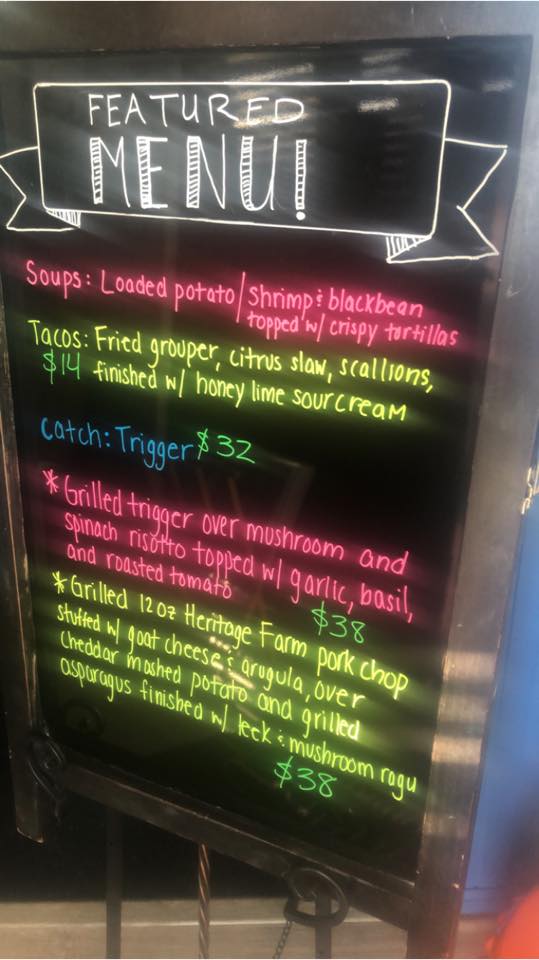 FEATURED
MENU!
Soups: Loaded potato/shrimp & blackbean
topped w/ crispy tortillas
Tacos: Fried grouper, citrus slaw, scallions,
$14 finished w/ honey lime sourcream
catch: Trigger $32
*Grilled trigger over mushroom and
spinach risotto topped w/ garlic, basil,
and roasted tomato
$38
*Grilled 12oz Heritage Farm pork chop
stuffed w/ goat cheese & arugula, over
cheddar mashed potato and grilled
asparagus finished w/ leek & mushroom ragu
$38